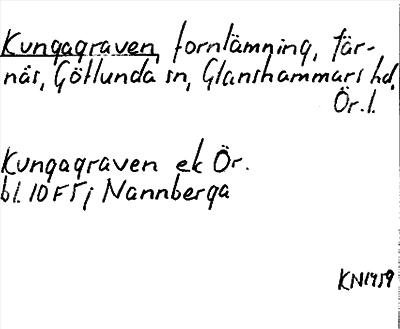 Kungagraven, fornlämning, Tär-
näs, Götlunda sn, Glanshammars hd,
Ör. l.
Kungagraven ek Ör.
bl. 10F5j Nannberga
KN1959